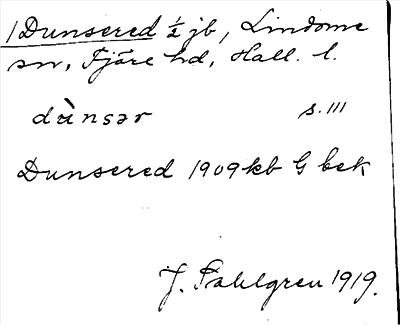 1 Dunsered ½ jb, Lindome
sn, Fjäre hd, Hall. l.
dù̀nsər s. 111
Dunsered 1909 kb G bek
J. Sahlgren 1919.